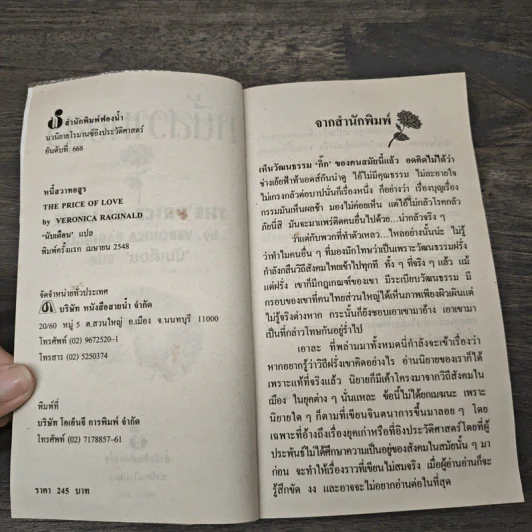 สำนักพิมพ์ฟองน้ำ
นวนิยายโรมานซ์อิงประวัติศาสตร์
อันดับที่ 668
หนี้สวาทอสูร
THE PRICE OF LOVE
by VERONICA RAGINALD
"นับเดือน" แปล
พิมพ์ครั้งแรก เมษายน 2548
จัดจำหน่ายทั่วประเทศ
บริษัท หนังสือสายน้ำ จำกัด
20/60 หมู่ 5 ต.สวนใหญ่ อ.เมือง จ.นนทบุรี 11000
โทรศัพท์ (02) 9672520-1
โทรสาร (02) 5250374
พิมพ์ที่
บริษัท โอเอ็นจี การพิมพ์ จำกัด
โทรศัพท์ (02) 7178857-61
ราคา 245 บาท
จากสำนักพิมพ์
เห็นวัฒนธรรม 'กิ๊ก' ของคนสมัยนี้แล้ว อดคิดไม่ได้ว่า
ช่างเย้ยฟ้าท้าเอดส์กันน่าดู ไอ้ไม่มีคุณธรรม ไม่ละอายใจ
ไม่เกรงกลัวต่อบาปนั่นก็เรื่องหนึ่ง ก็อย่างว่า เรื่องบุญเรื่อง
กรรมมันเห็นผลช้า มองไม่ค่อยเห็น แต่ไอ้ไม่กลัวโรคกลัว
ภัยนี่สิ มันจะมาแพร่ติดคนอื่นไปด้วย...น่ากลัวจริง ๆ
ว้าแต่กับพวกที่ทำตัวเหลว...ไหลอย่างนั้นน่ะ ไม่รู้
ว่าทำไมคนอื่น ๆ ที่มองมักโทษว่าเป็นเพราะวัฒนธรรมฝรั่ง
กำลังกลืนวิถีสังคมไทยเข้าไปทุกที ทั้ง ๆ ที่จริง ๆ แล้ว แม้
แต่ฝรั่ง เขาก็มีกฎเกณฑ์ของเขา มีระเบียบวัฒนธรรม มี
กรอบของเขาที่คนไทยส่วนใหญ่ได้เห็นภาพเพียงผิวเผินแต่
ไม่รู้จริงต่างหาก กระนั้นก็ยังชอบเอาเขามาอ้าง เอาเขามา
เป็นที่กล่าวโทษกันอยู่ร่ำไป
เอาละ ที่พล่ามมาทั้งหมดนี่กำลังจะเข้าเรื่องว่า
หากอยากรู้ว่าวิถีฝรั่งเขาคิดอย่างไร อ่านนิยายของเราก็ได้
เพราะแท้ที่จริงแล้ว นิยายก็มีเค้าโครงมาจากวิถีสังคมใน
เมือง ในยุคต่าง ๆ นั่นแหละ ข้อนี้ไม่ได้ยกเมฆนะ เพราะ
นิยายใด ๆ ก็ตามที่เขียนจินตนาการขึ้นมาลอย ๆ โดย
เฉพาะที่อ้างถึงเรื่องยุคเก่าหรือที่อิงประวัติศาสตร์โดยที่ผู้
ประพันธ์ไม่ได้ศึกษาความเป็นอยู่ของสังคมในสมัยนั้น ๆ มา
ก่อน จะทำให้เรื่องราวที่เขียนไม่สมจริง เมื่อผู้อ่านอ่านก็จะ
รู้สึกขัด งง และอาจจะไม่อยากอ่านต่อในที่สุด